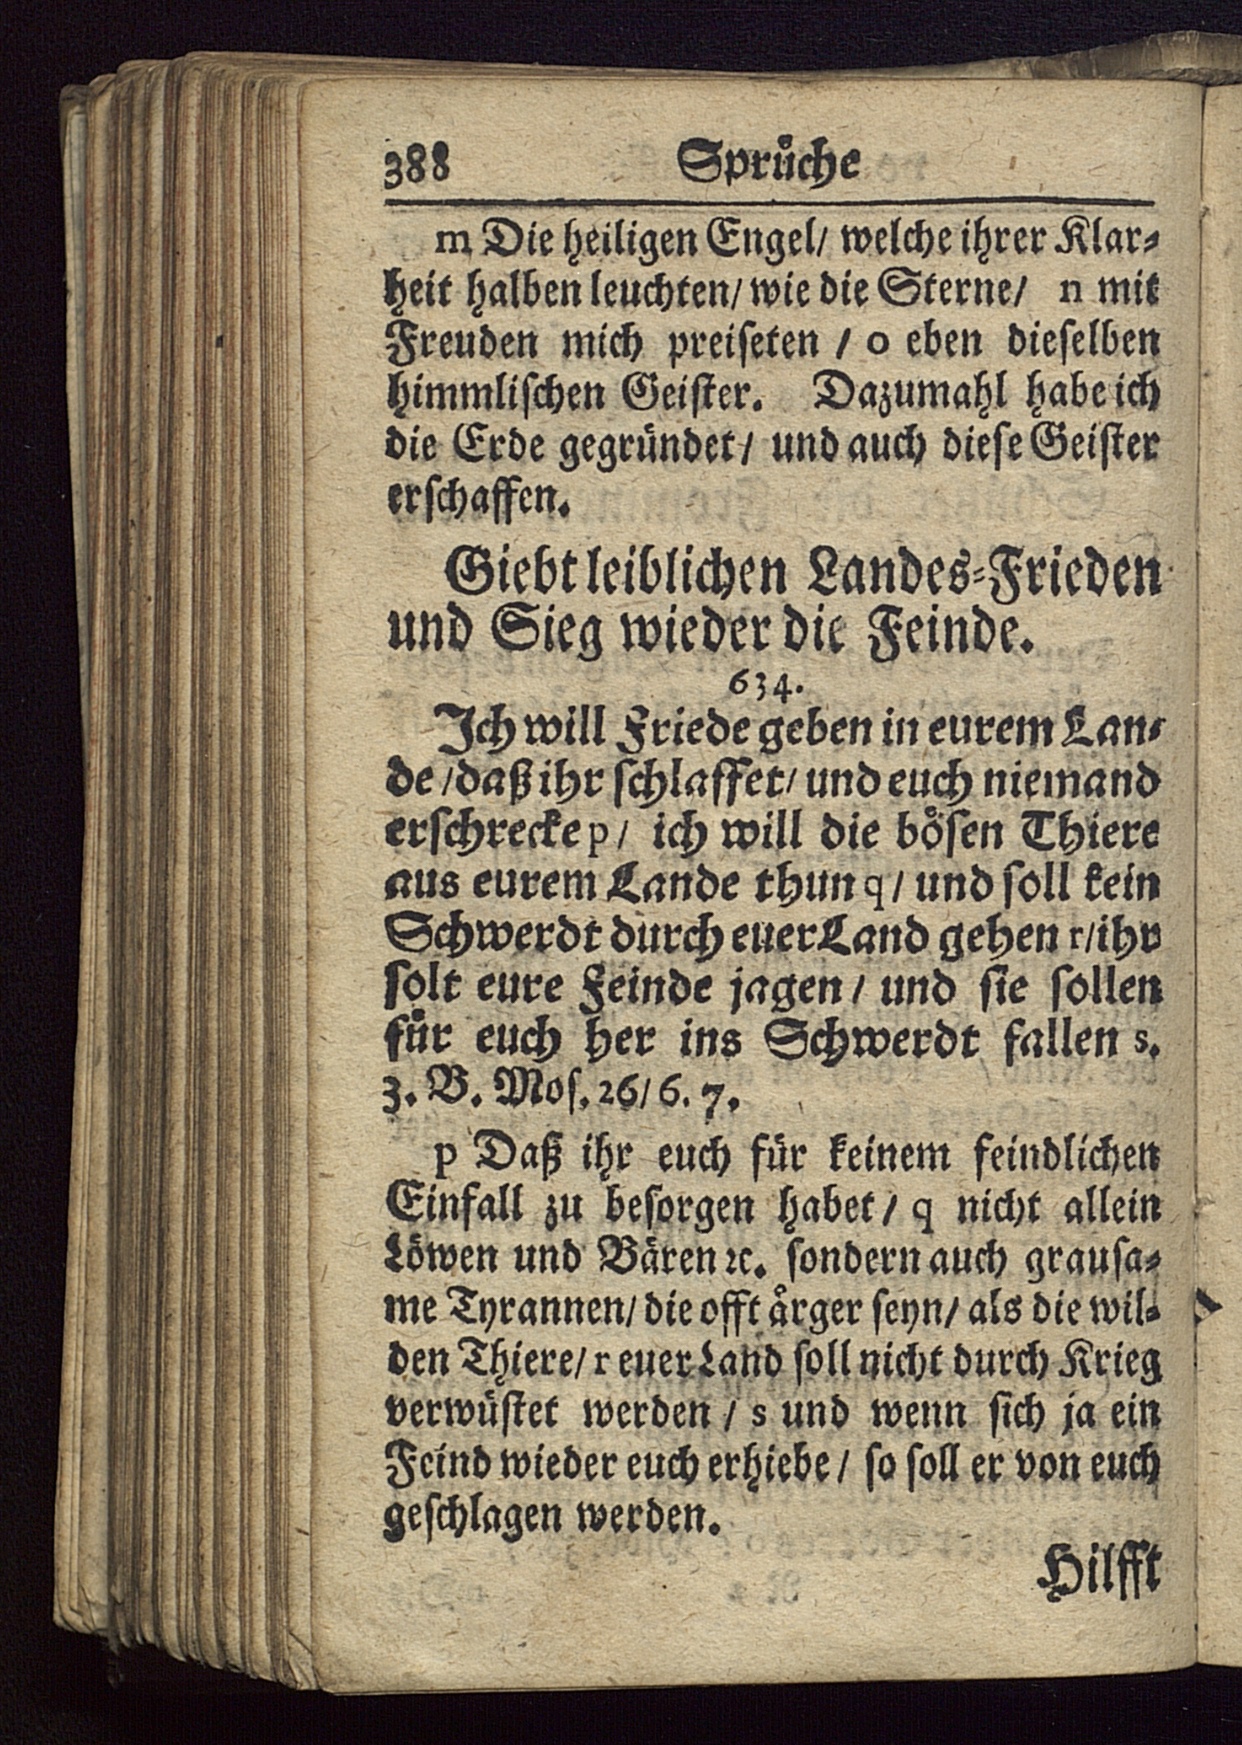 388 Sprüche
m Die heiligen Engel/ welche ihrer Klar⸗
heit halben leuchten/ wie die Sterne/ n mit
Freuden mich preiseten / o eben dieselben
himmlischen Geister. Dazumahl habe ich
die Erde gegründet/ und auch diese Geister
erschaffen.
Giebt leiblichen Landes⸗Frieden
und Sieg wieder die Feinde.
634.
Ich will Friede geben in eurem Lan⸗
de /daß ihr schlaffet/ und euch niemand
erschrecke p/ ich will die bösen Thiere
aus eurem Lande thun q/ und soll kein
Schwerdt durch euer Land gehen r/ihr
solt eure Feinde jagen / und sie sollen
für euch her ins Schwerdt fallen s.
3. B. Mos. 26/ 6. 7.
p Daß ihr euch für keinem feindlichen
Einfall zu besorgen habet / q nicht allein
Löwen und Bären ꝛc. sondern auch grausa⸗
me Tyrannen/ die offt ärger seyn/ als die wil⸗
den Thiere/ r euer Land soll nicht durch Krieg
verwüstet werden / s und wenn sich ja ein
Feind wieder euch erhiebe / so soll er von euch
geschlagen werden.
Hilfft